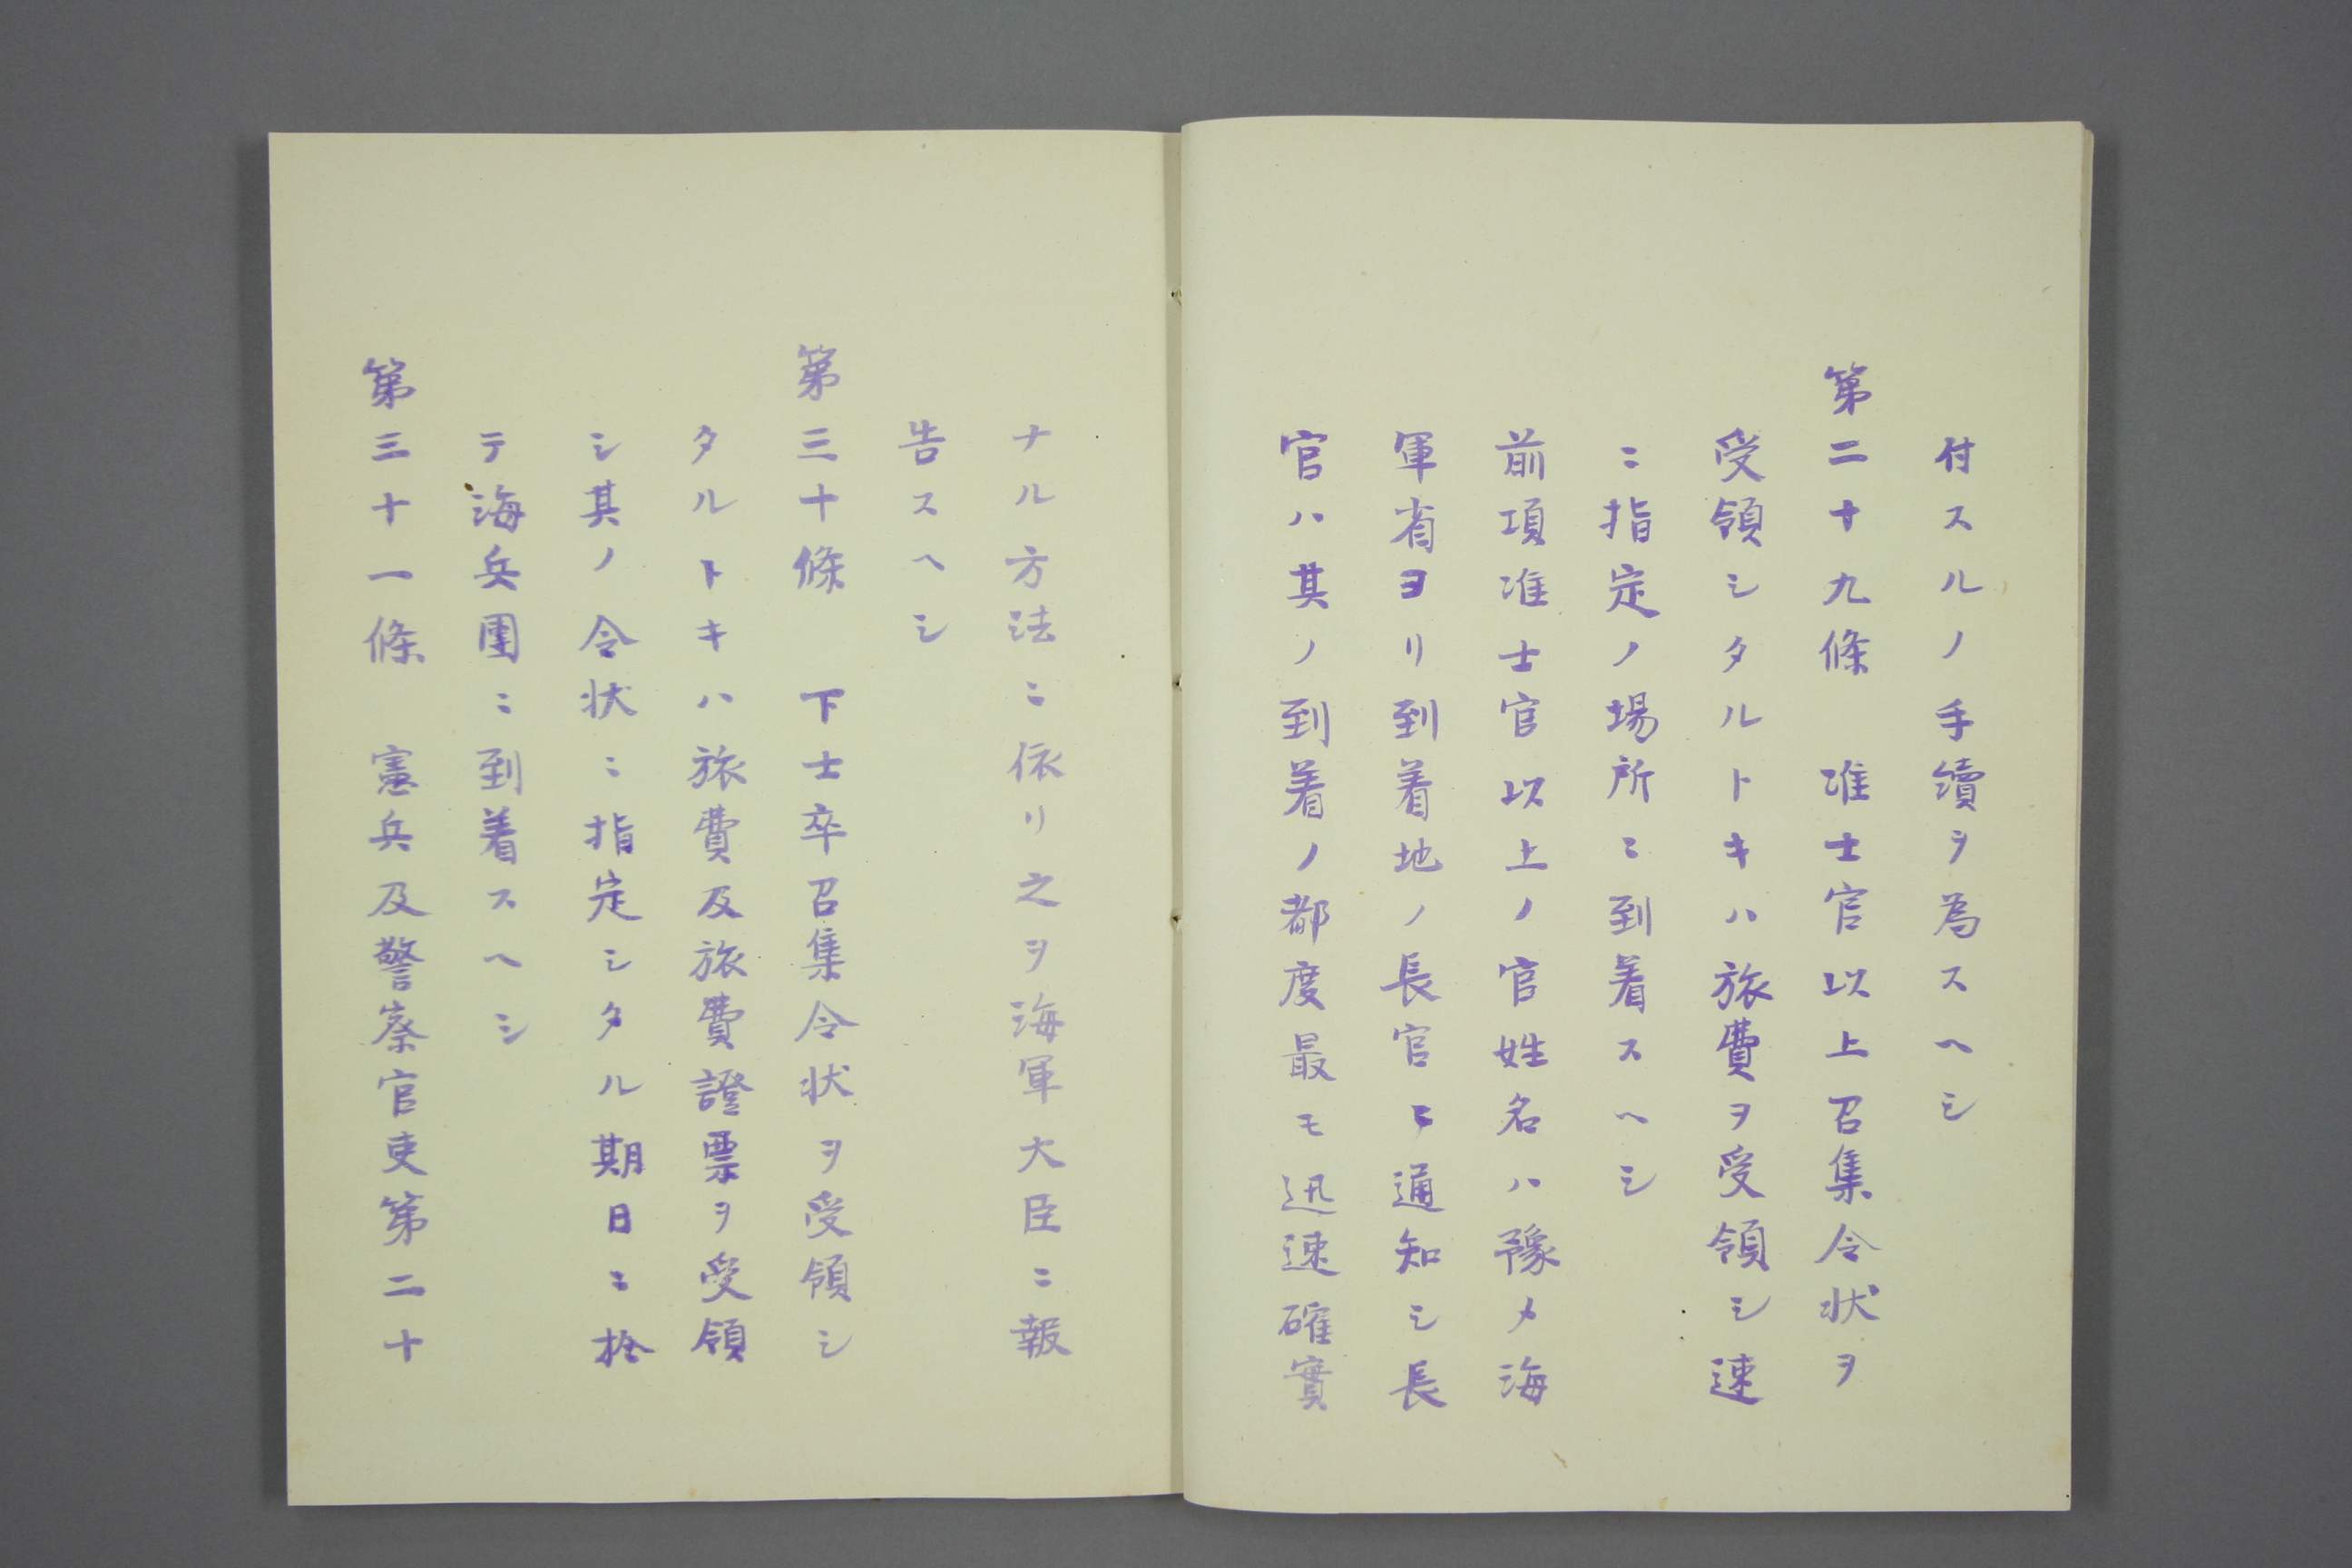 付スルノ手續ヲ為スヘシ
第二十九條　准士官以上召集令状ヲ
受領シタルトキハ旅費ヲ受領シ速
ニ指定ノ場所ニ到着スヘシ
前項准士官以上ノ官姓名ハ豫メ海
軍省ヨリ到着地ノ長官ニ通知シ長
官ハ其ノ到着ノ都度最モ迅速確實
ナル方法ニ依リ之ヲ海軍大臣ニ報
告スヘシ
第三十條　下士卒召集令状ヲ受領シ
タルトキハ旅費及旅費證票ヲ受領
シ其ノ令状ニ指定シタル期日ニ於
テ海兵團ニ到着スヘシ
第三十一條　憲兵及警察官吏第二十